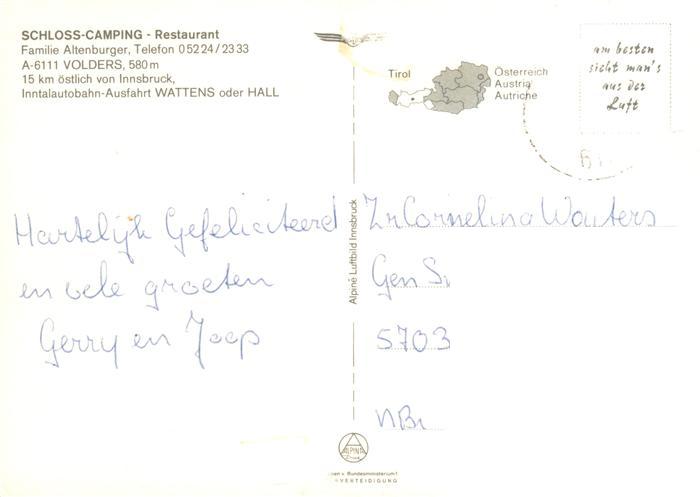 SCHLOSS-CAMPING - Restaurant
Familie Altenburger, Telefon 05224/2333
A-6111 VOLDERS, 580m
15 km östlich von Innsbruck,
Inntalautobahn-Ausfahrt WATTENS oder HALL
Tirol
Österreich
Austria
Autriche
am besten
sieht man's
aus der
Luft
Hartelijk Gefeliciteerd
en vele groeten
Gerry en Joop
Alpine Luftbild Innsbruck
Zr Cornelina Wouters
Gen S
5703
NBr
ALPINA
Bundesministerium f
VERTEIDIGUNG